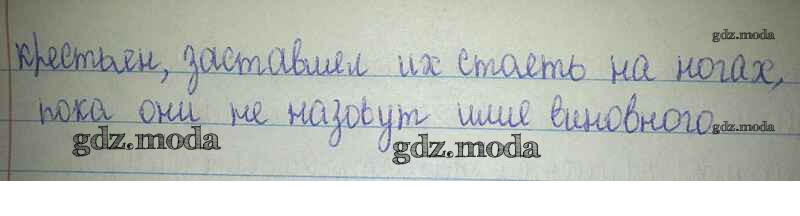 gdz.moda
крестьян, заставлял их стоять на ногах,
пока они не назовут имя виновного
gdz.moda
gdz.moda
gdz.moda